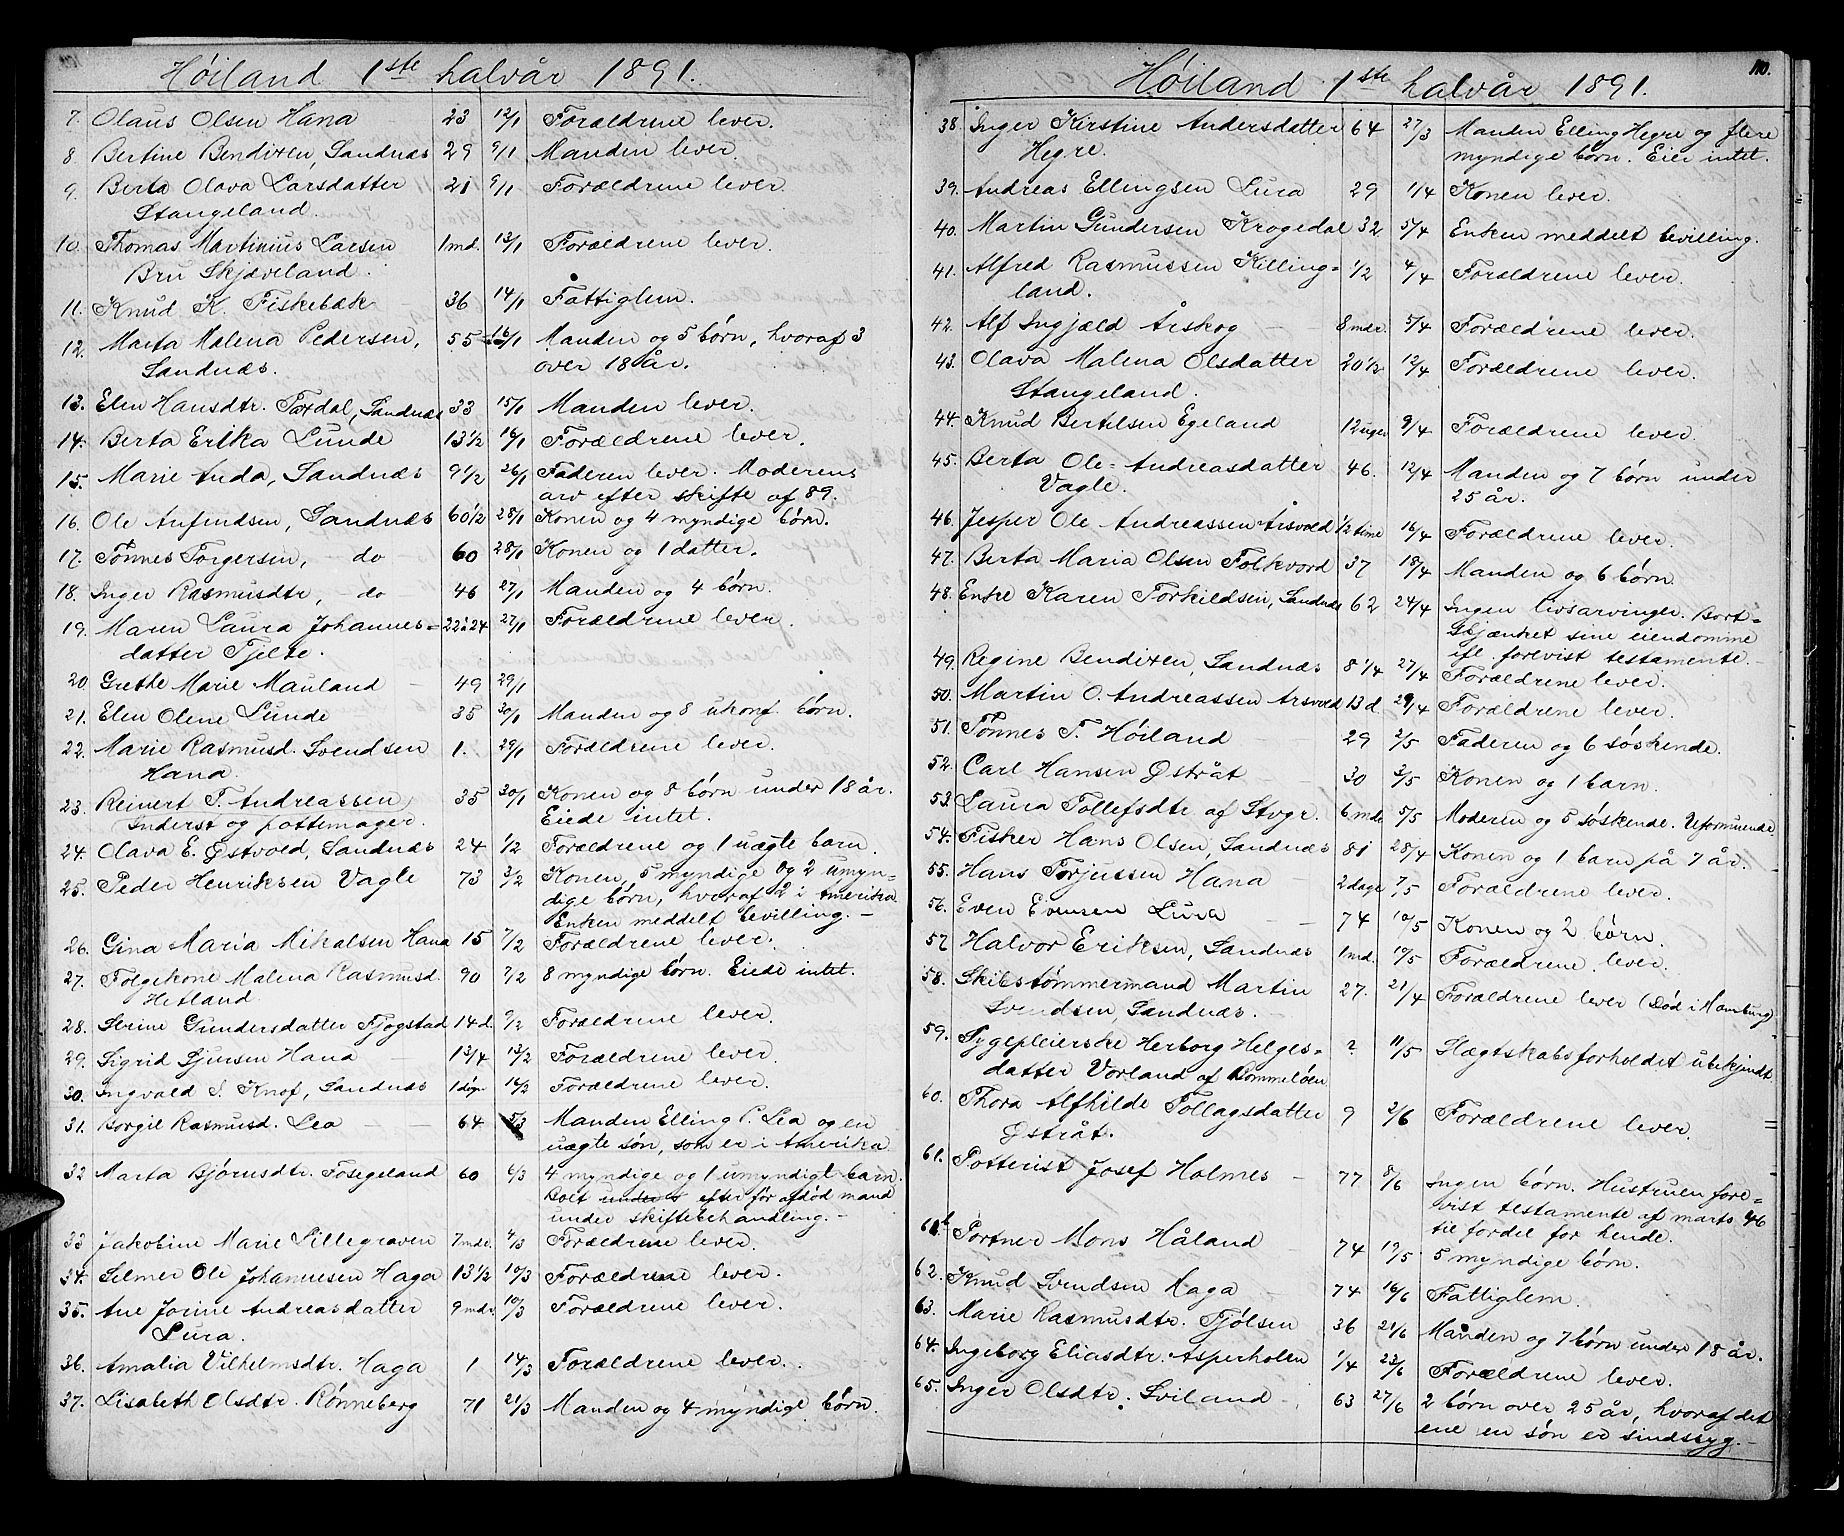 Høiland 1ste halvår 1891.
7. Olaus Olsen Hana 23 12/1 Forældrene lever.
8. Bertine Bendixen, Sandnæs 29 9/1 Manden lever.
9. Berta Olava Larsdatter 21 9/1 Forældrene lever.
Stangeland.
10. Thomas Martinius Larsen 1 md. 13/1 Forældrene lever.
Bru Skjæveland.
11. Knud K. Fiskebæk 36 14/1 Fattiglem.
12. Marta Malena Pedersen, 55 16/1 Manden og 5 børn, hvoraf 3
Sandnæs. over 18 år.
13. Elen Hansdtr. Taxdal, Sandnæs 33 15/1 Manden lever.
14. Berta Erika Lunde 13 1/2 16/1 Forældrene lever.
15. Marie Anda, Sandnæs 9 1/2 26/1 Faderen lever. Moderens
arv efter skifte af 89.
16. Ole Anfindsen, Sandnæs 60 1/2 28/1 Konen og 4 myndige børn.
17. Tønnes Torgersen, - do 60 28/1 Konen og 1 datter.
18. Inger Rasmusdtr, - do 46 27/1 Manden og 4 børn.
19. Maren Laura Johannes= 22 à 24 27/1 Forældrene lever.
datter Tjelte.
20. Grethe Marie Mauland - 49 29/1
21. Elen Olene Lunde - 35 30/1 Manden og 8 ukonf. børn.
22. Marie Rasmusd. Svendsen 1. 29/1 Forældrene lever.
Hana.
23. Reinert T. Andreassen, 35 30/1 Konen og 8 børn under 18 år.
Inderst og pottemager. Eiede intet.
24. Olava E. Østvold, Sandnæs 24 1/2 Forældrene og 1 uægte barn.
25. Peder Henriksen Vagle 73 3/2 Konen, 5 myndige og 2 umyn=
dige børn, hvoraf 2 i Amerika.
Enken meddelt bevilling. -
26. Gina Maria Mikalsen Hana 15 7/2 Forældrene lever.
27. Følgekone Malena Rasmusd. 90 7/2 8 myndige børn. Eiede intet.
Hetland.
28. Serine Gundersdatter Fjogstad 14 d. 9/2 Forældrene lever.
29. Sigrid Sjursen Hana - 1 3/4 13/2 Forældrene lever.
30. Ingvald S. Knof, Sandnæs 1 døgn 16/2 Forældrene lever.
31. Borgil Rasmusd. Lea - - 64 5/3 Manden Elling P. Lea og en
uægte søn, som er i Amerika
32 Marta Bjørnsdtr. Fosegeland 60 6/3 4 myndige og 1 umyndigt barn.
Boet under s efter før afdød mand
under skiftebehandling. -
33 Jakobine Marie Lillegraven 7 mdr. 9/3 Forældrene lever.
34. Selmer Ole Johannesen Haga 13 1/2 10/3 Forældrene lever.
35. Ane Jorine Andreasdatter 9 mdr. 10/3 Forældrene lever.
Lura.
36. Amalia Vilhelmsdtr. Haga 1 14/3 Forældrene lever.
37. Lisabeth Olsdtr. Rønneberg 71 21/3 Manden og 4 myndige børn.
110.
Høiland 1ste halvår 1891.
38. Inger Kirstine Andersdatter 64 27/3 Manden Elling Hegre og flere
Hegre. myndige børn. Eier intet.
39. Andreas Ellingsen Lura 29 1/4 Konen lever.
40. Martin Gundersen Krogedal 32 5/4 Enken meddelt bevilling.
41. Alfred Rasmussen Killing= 1/2 4/4 Forældrene lever.
land.
42. Alf Ingjæld Årskog - 8 mdr. 5/4 Forældrene lever.
43. Olava Malena Olsdatter 20 1/2 12/4 Forældrene lever.
Stangeland.
44. Knud Bertilsen Egeland 12 uger 9/4 Forældrene lever.
45. Berta Ole=Andreasdatter 46. 12/4 Manden og 7 børn under
Vagle. 25 år.
46. Jesper Ole Andreassen Arsvold 1/2 time 16/4 Forældrene lever.
47. Berta Maria Olsen Folkvord 37 18/4 Manden og 6 børn.
48. Enke Karen Torkildsen, Sandnæs 62 24/4 Ingen livsarvinger. Bort=
skjænket sine eiendomme
ifl. forevist testamente.
49. Regine Bendixen, Sandnæs 8 1/4 27/4 Forældrene lever.
50. Martin O. Andreassen Arsvold 13 d. 29/4 Forældrene lever.
51. Tønnes T. Høiland 29 2/5 Faderen og 6 søskende.
52. Carl Hansen Østråt - 30 3/5 Konen og 1 barn.
53. Laura Tollefsdtr. af Stvgr. 6 mdr 5/5 Moderen og 5 søskende. Uformuende
54. Fisker Hans Olsen, Sandnæs 81 28/4 Konen og 1 barn på 7 år.
55. Hans Torjussen Hana - 2 dage 7/5 Forældrene lever.
56. Even Evensen Lura - 74 10/5 Konen og 2 børn.
57. Halvor Eriksen, Sandnæs 1 md. 17/5 Forældrene lever.
58. Skibstømmermand Martin 27. 21/4 Forældrene lever (Død i Hamburg)
Svendsen, Sandnæs. -
59. Sygepleierske Herborg Helges= ? 11/5 Slægtskabsforholdet ubekjendt
datter Vorland af
60. Thora Alfhilde Tollagsdatter 9 2/6 Forældrene lever. =
Østråt.
61. Potterist Josef Holmes - 77 8/6 Ingen børn. Hustruen fore=
vist testamente af marts 46
til fordel for hende.
61b Portner Mons Håland 74 19/5 5 myndige børn.
62. Knud Svendsen Haga 74 16/6 Fattiglem.
63. Marie Rasmusdtr. Tjølsen 36 21/6 Manden og 7 børn under 18 år.
64. Ingeborg Eliasdtr. Asperholen 1/4 23/6 Forældrene lever.
65. Inger Olsdtr. Sviland - 63 27/6 2 børn over 25 år, hvoraf det
ene en søn er sindssyg. -